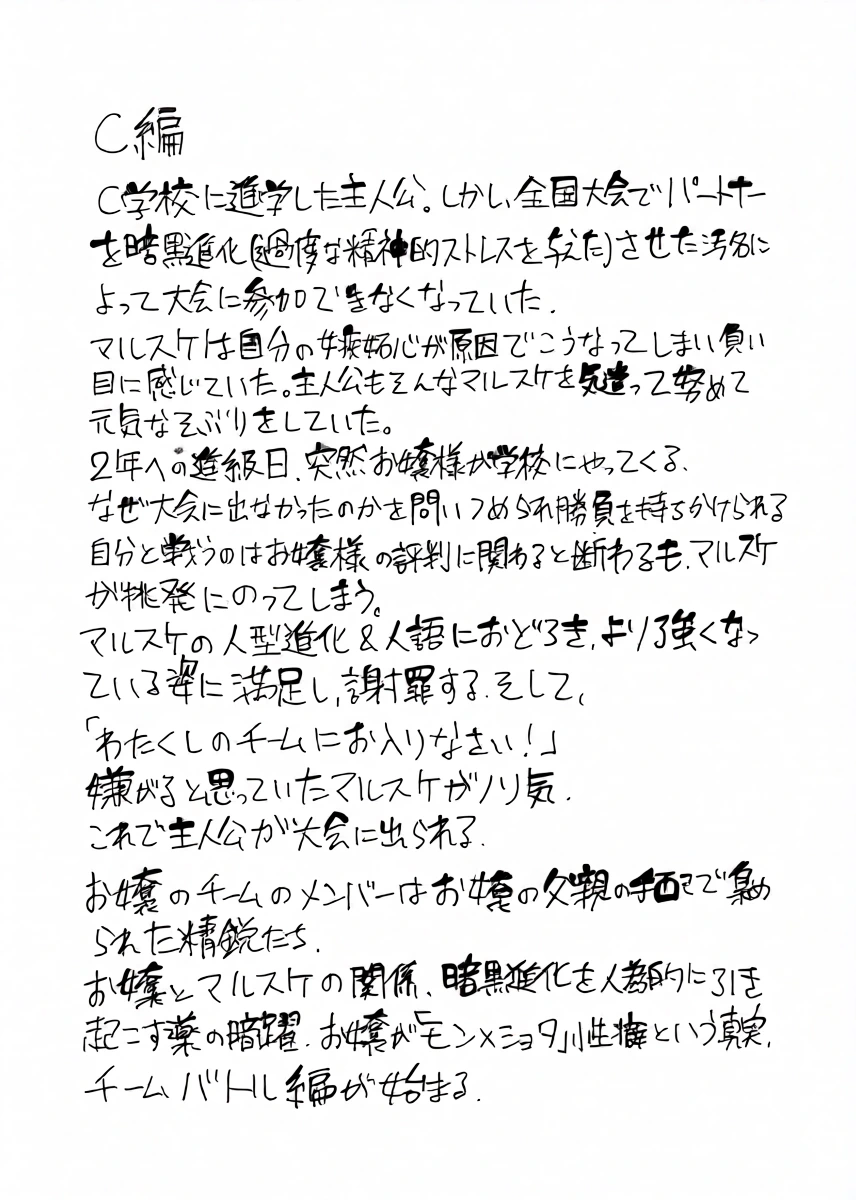 C編
C学校に進学した主人公。しかし、全国大会でパートナー
を暗黒進化(過度な精神的ストレスを与えた)させた汚名に
よって大会に参加できなくなっていた.
マルスケは自分の嫉妬心が原因でこうなってしまい負い
目に感じていた。主人公もそんなマルスケを気遣って努めて
元気なそぶりをしていた。
2年への進級日、突然お嬢様が学校にやってくる、
なぜ大会に出なかったのかを問いつめられ勝負を持ちかけられる
自分と戦うのはお嬢様の評判に関わると断わるも、マルスケ
が挑発にのってしまう。
マルスケの人型進化&人語におどろき、より強くなっ
ている姿に満足し、謝罪する.そして、
「わたくしのチームにお入りなさい!」
嫌がると思っていたマルスケがノリ気.
これで主人公が大会に出られる.
お嬢のチームのメンバーはお嬢の父親の手配で集め
られた精鋭たち.
お嬢とマルスケの関係、暗黒進化を人為的に引き
起こす薬の暗躍.お嬢が「モン×ショタ」性癖という真実.
チームバトル編が始まる.